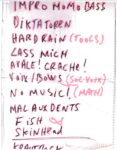 IMPRO MOMO BASS
DIKTATOREN
HARDRAIN (TOOLS)
LASS MICH
AVALE! CRACHE!
VOIX/BOWS (SOL VOIX)
NO MUSIC! (MATH)
MAL AUX DENTS
FISH
SKINHEAD